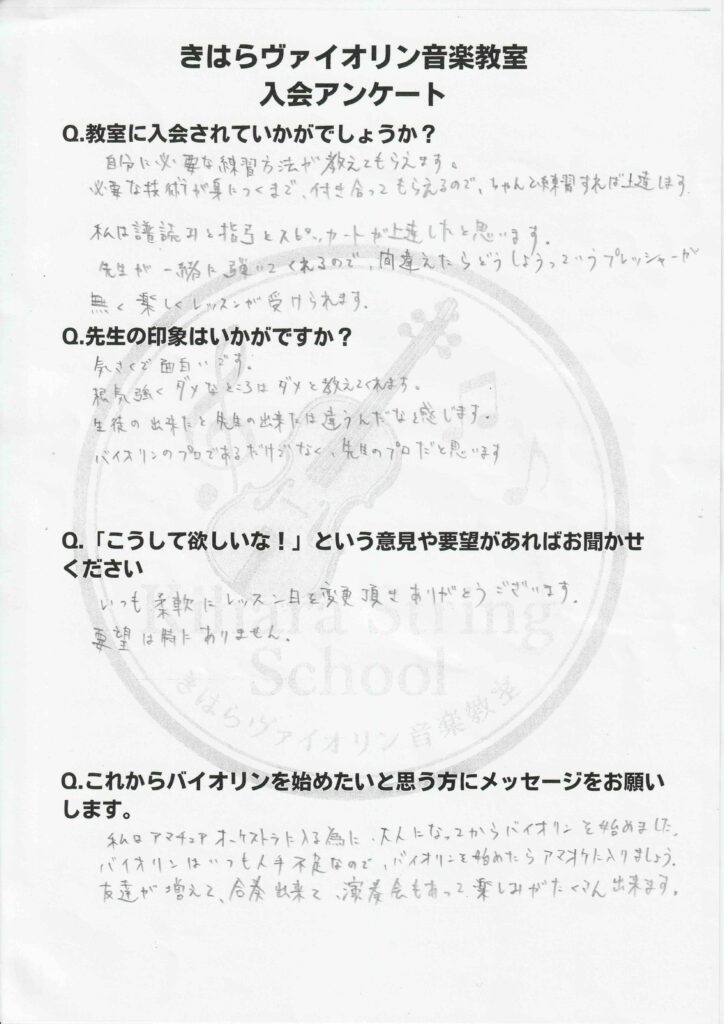 きはらヴァイオリン音楽教室
入会アンケート
Q.教室に入会されていかがでしょうか？
自分に必要な練習方法が教えてもらえます。
必要な技術が身につくまで、付き合ってもらえるので、ちゃんと練習すれば上達します
私は譜読みと指弓とスピッカートが上達したと思います。
先生が一緒に弾いてくれるので、間違えたらどうしようっていうプレッシャーが
無く楽しくレッスンが受けられます。
Q.先生の印象はいかがですか？
気さくで面白いです。
根気強くダメなところはダメと教えてくれます。
生徒の出来たと先生の出来たは違うんだなと感じます。
バイオリンのプロであるだけでなく、先生のプロだと思います
Q.「こうして欲しいな！」という意見や要望があればお聞かせ
ください
いつも柔軟にレッスン日を変更頂きありがとうございます。
要望は特にありません。
Kihara String
School
きはらヴァイオリン音楽教室
Q.これからバイオリンを始めたいと思う方にメッセージをお願い
します。
私はアマチュアオーケストラに入る為に、大人になってからバイオリンを始めました。
バイオリンはいつも人手不足なので、バイオリンを始めたらアマオケに入りましょう。
友達が増えて、合奏出来て、演奏会もあって楽しみがたくさん出来ます。